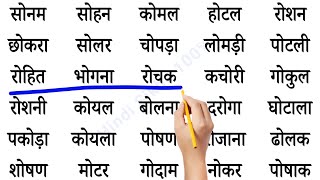 सोनम सोहन कोमल होटल रोशन
छोकरा सोलर चोपड़ा लोमड़ी पोटली
रोहित भोगना रोचक कचोरी गोकुल
रोशनी कोयल बोलना दरोगा घोटाला
पकोड़ा कोयला पोषण ढोलक
शोषण मोटर गोदाम नोकर पोषाक